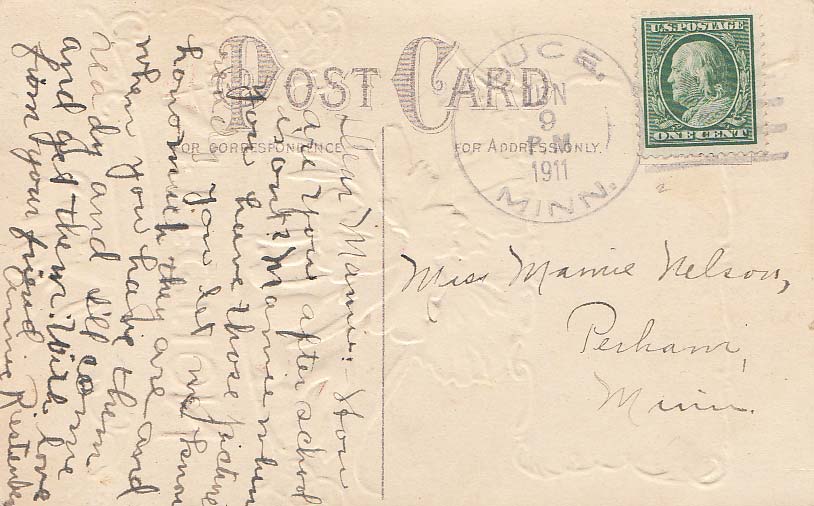 POST CARD
FOR CORRESPONDENCE
FOR ADDRESS ONLY.
U.S. POSTAGE
ONE CENT
UCE,
9
P.M.
1911
MINN.
Miss Mamie Nelson,
Perham,
Minn.
Dear Mamie:- How
are you after school
is out? Mamie when
You have those picture
You let me know
how much they are and
when you have them
ready and I'll come
and get them. With love
from your friend
Annie